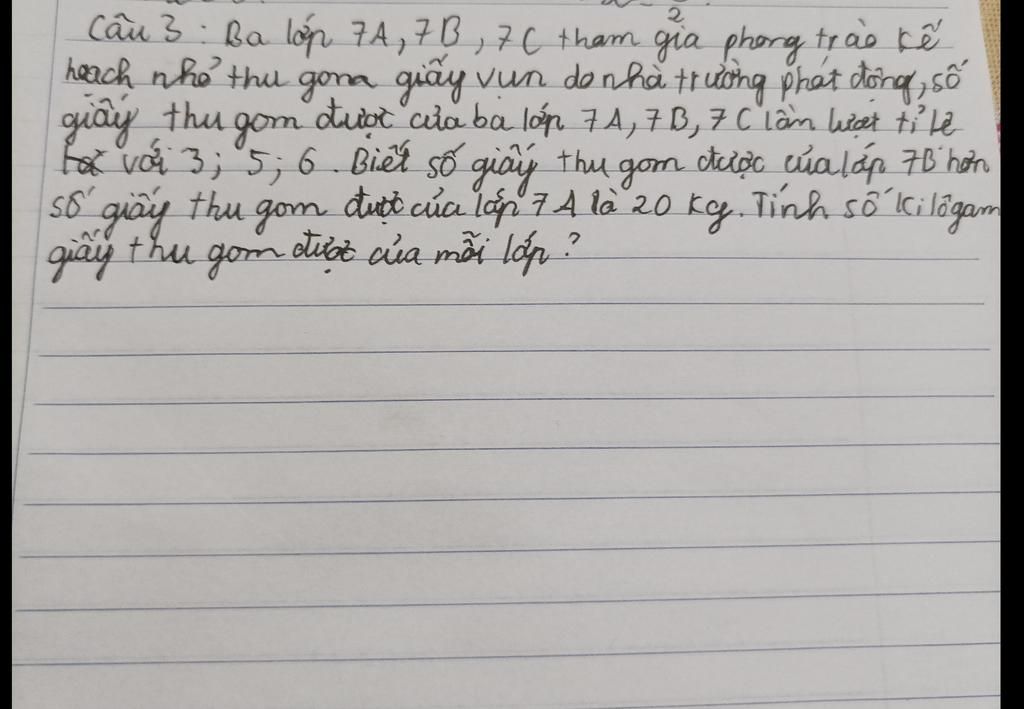 2
Câu 3 : Ba lớp 7A, 7B, 7C tham gia phong trào kế
hoạch nhỏ thu gom giấy vụn do nhà trường phát động, số
giấy thu gom được của ba lớp 7A, 7B, 7C lần lượt tỉ lệ
với 3; 5; 6. Biết số giấy thu gom được của lớp 7B hơn
số giấy thu gom được của lớp 7A là 20 kg. Tính số kilôgam
giấy thu gom được của mỗi lớp?